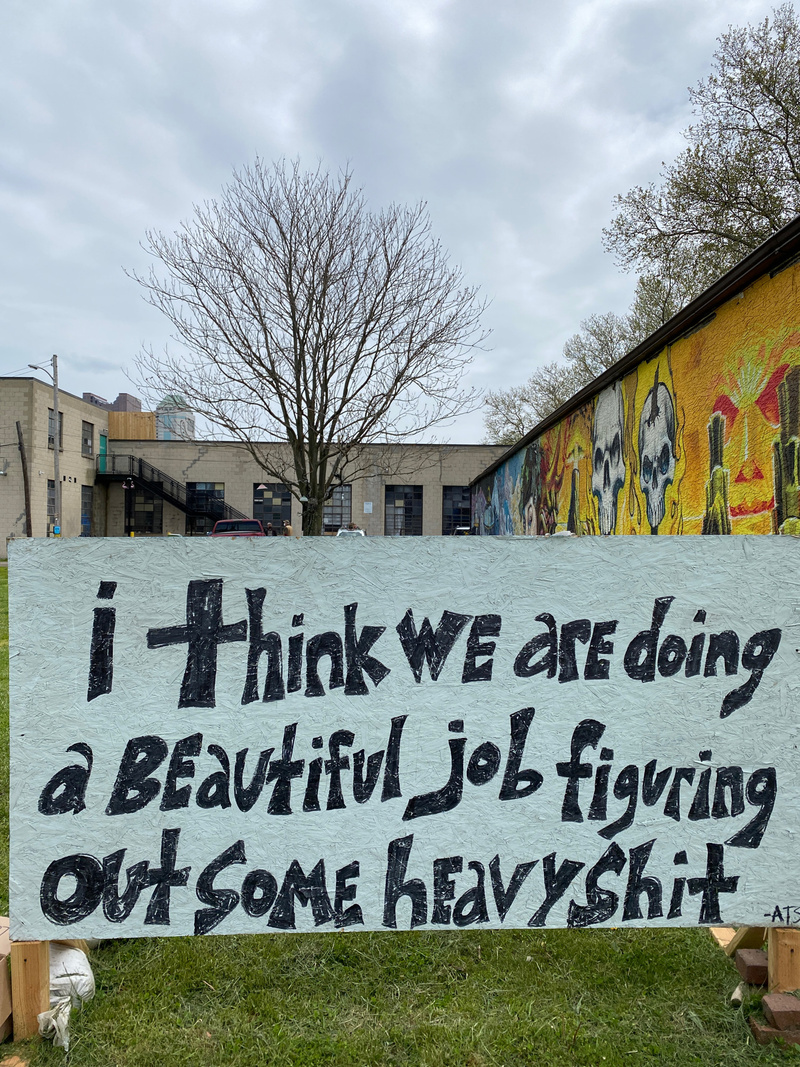 i think WE are doing
a BEautiful job figuring
Out SOME heavy Shit
-ATS